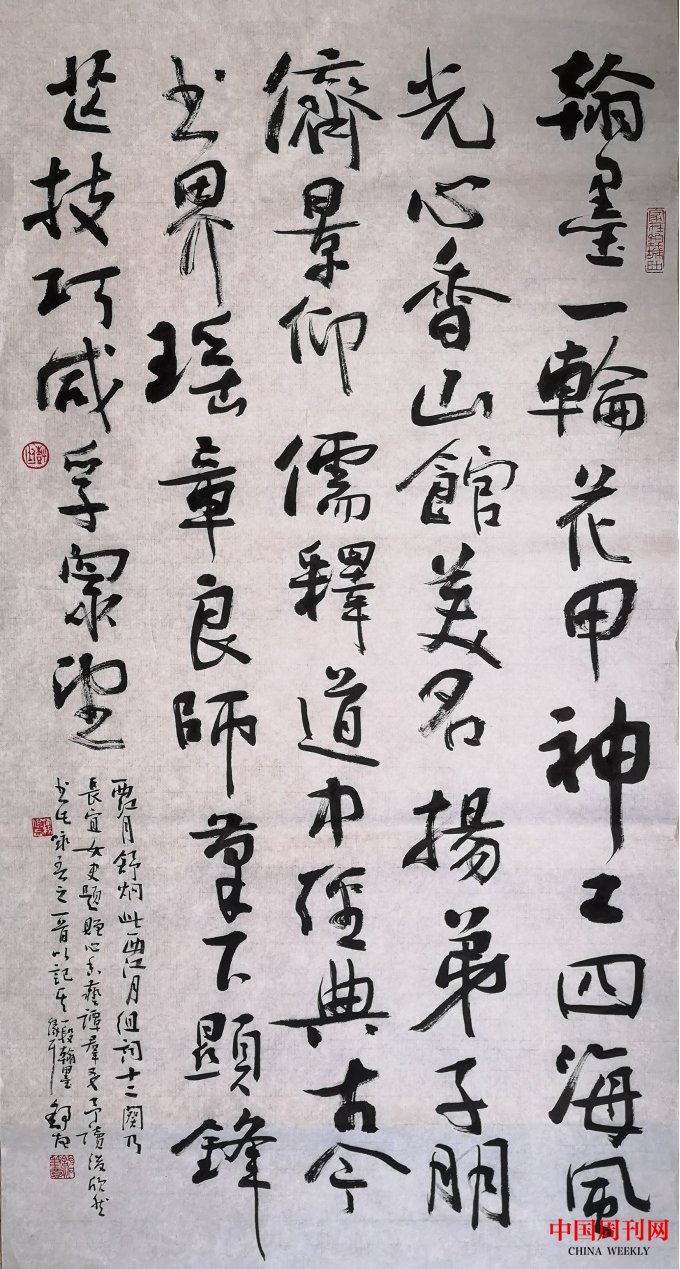 翰墨一輪花甲神工四海風
光心香山館美名揚弟子朋
儕景仰儒釋道中經典古今
书界瑶章良師筆下顯鋒
芒技巧咸孚眾望
西江月舒炯此西江月组词十二闋乃
長宜女史题贈心香藝譚羣予讀後欣然
书 之一 以記 翰墨
中国周刊网
CHINA WEEKLY